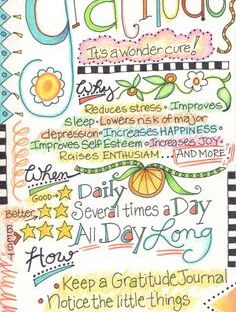 Gratitude
It's a wonder cure!
Why
Reduces stress • Improves
sleep • Lowers risk of major
depression • Increases HAPPINESS •
Improves Self Esteem • Increases JOY •
Raises ENTHUSIAM... AND MORE!
When
Good Daily
Better Several times a Day
BEST All Day Long
How
• Keep a Gratitude Journal
• Notice the little things